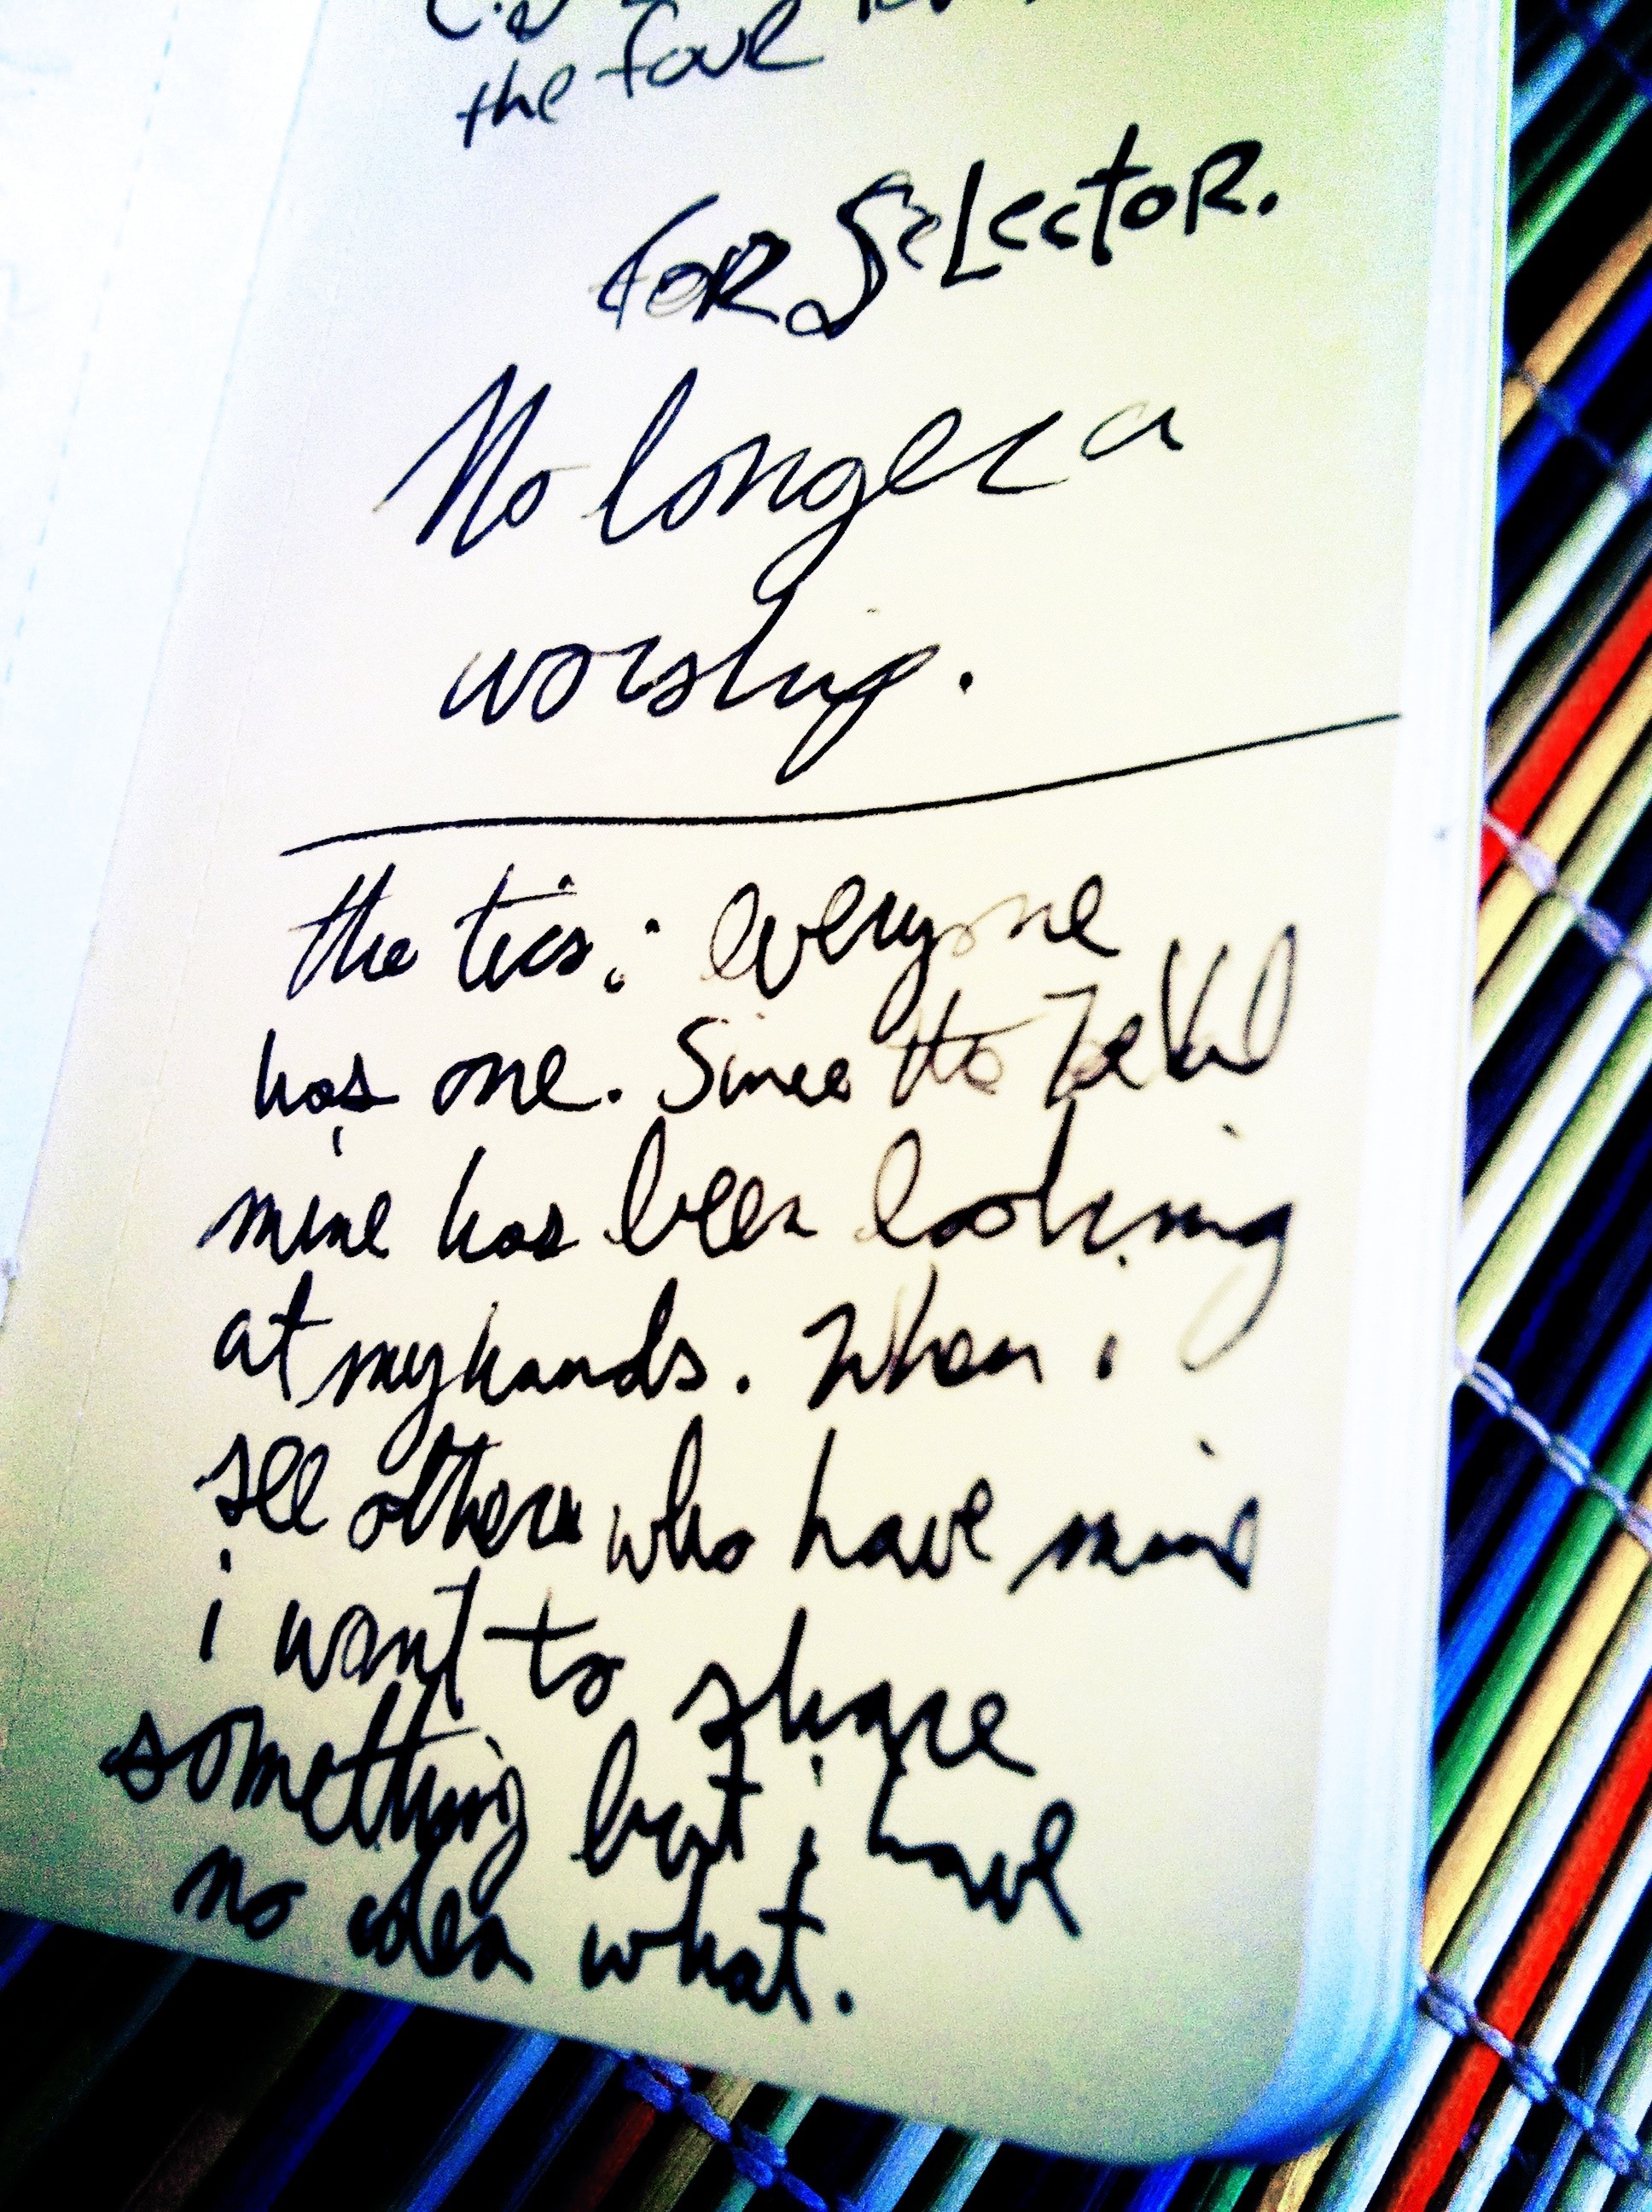 the four
FOR SELECTOR.
No longer a
worship.
the tics: everyone
has one. Since the
mine has been looking
at my hands. When i
see others who have mine
i want to share
something but i have
no idea what.